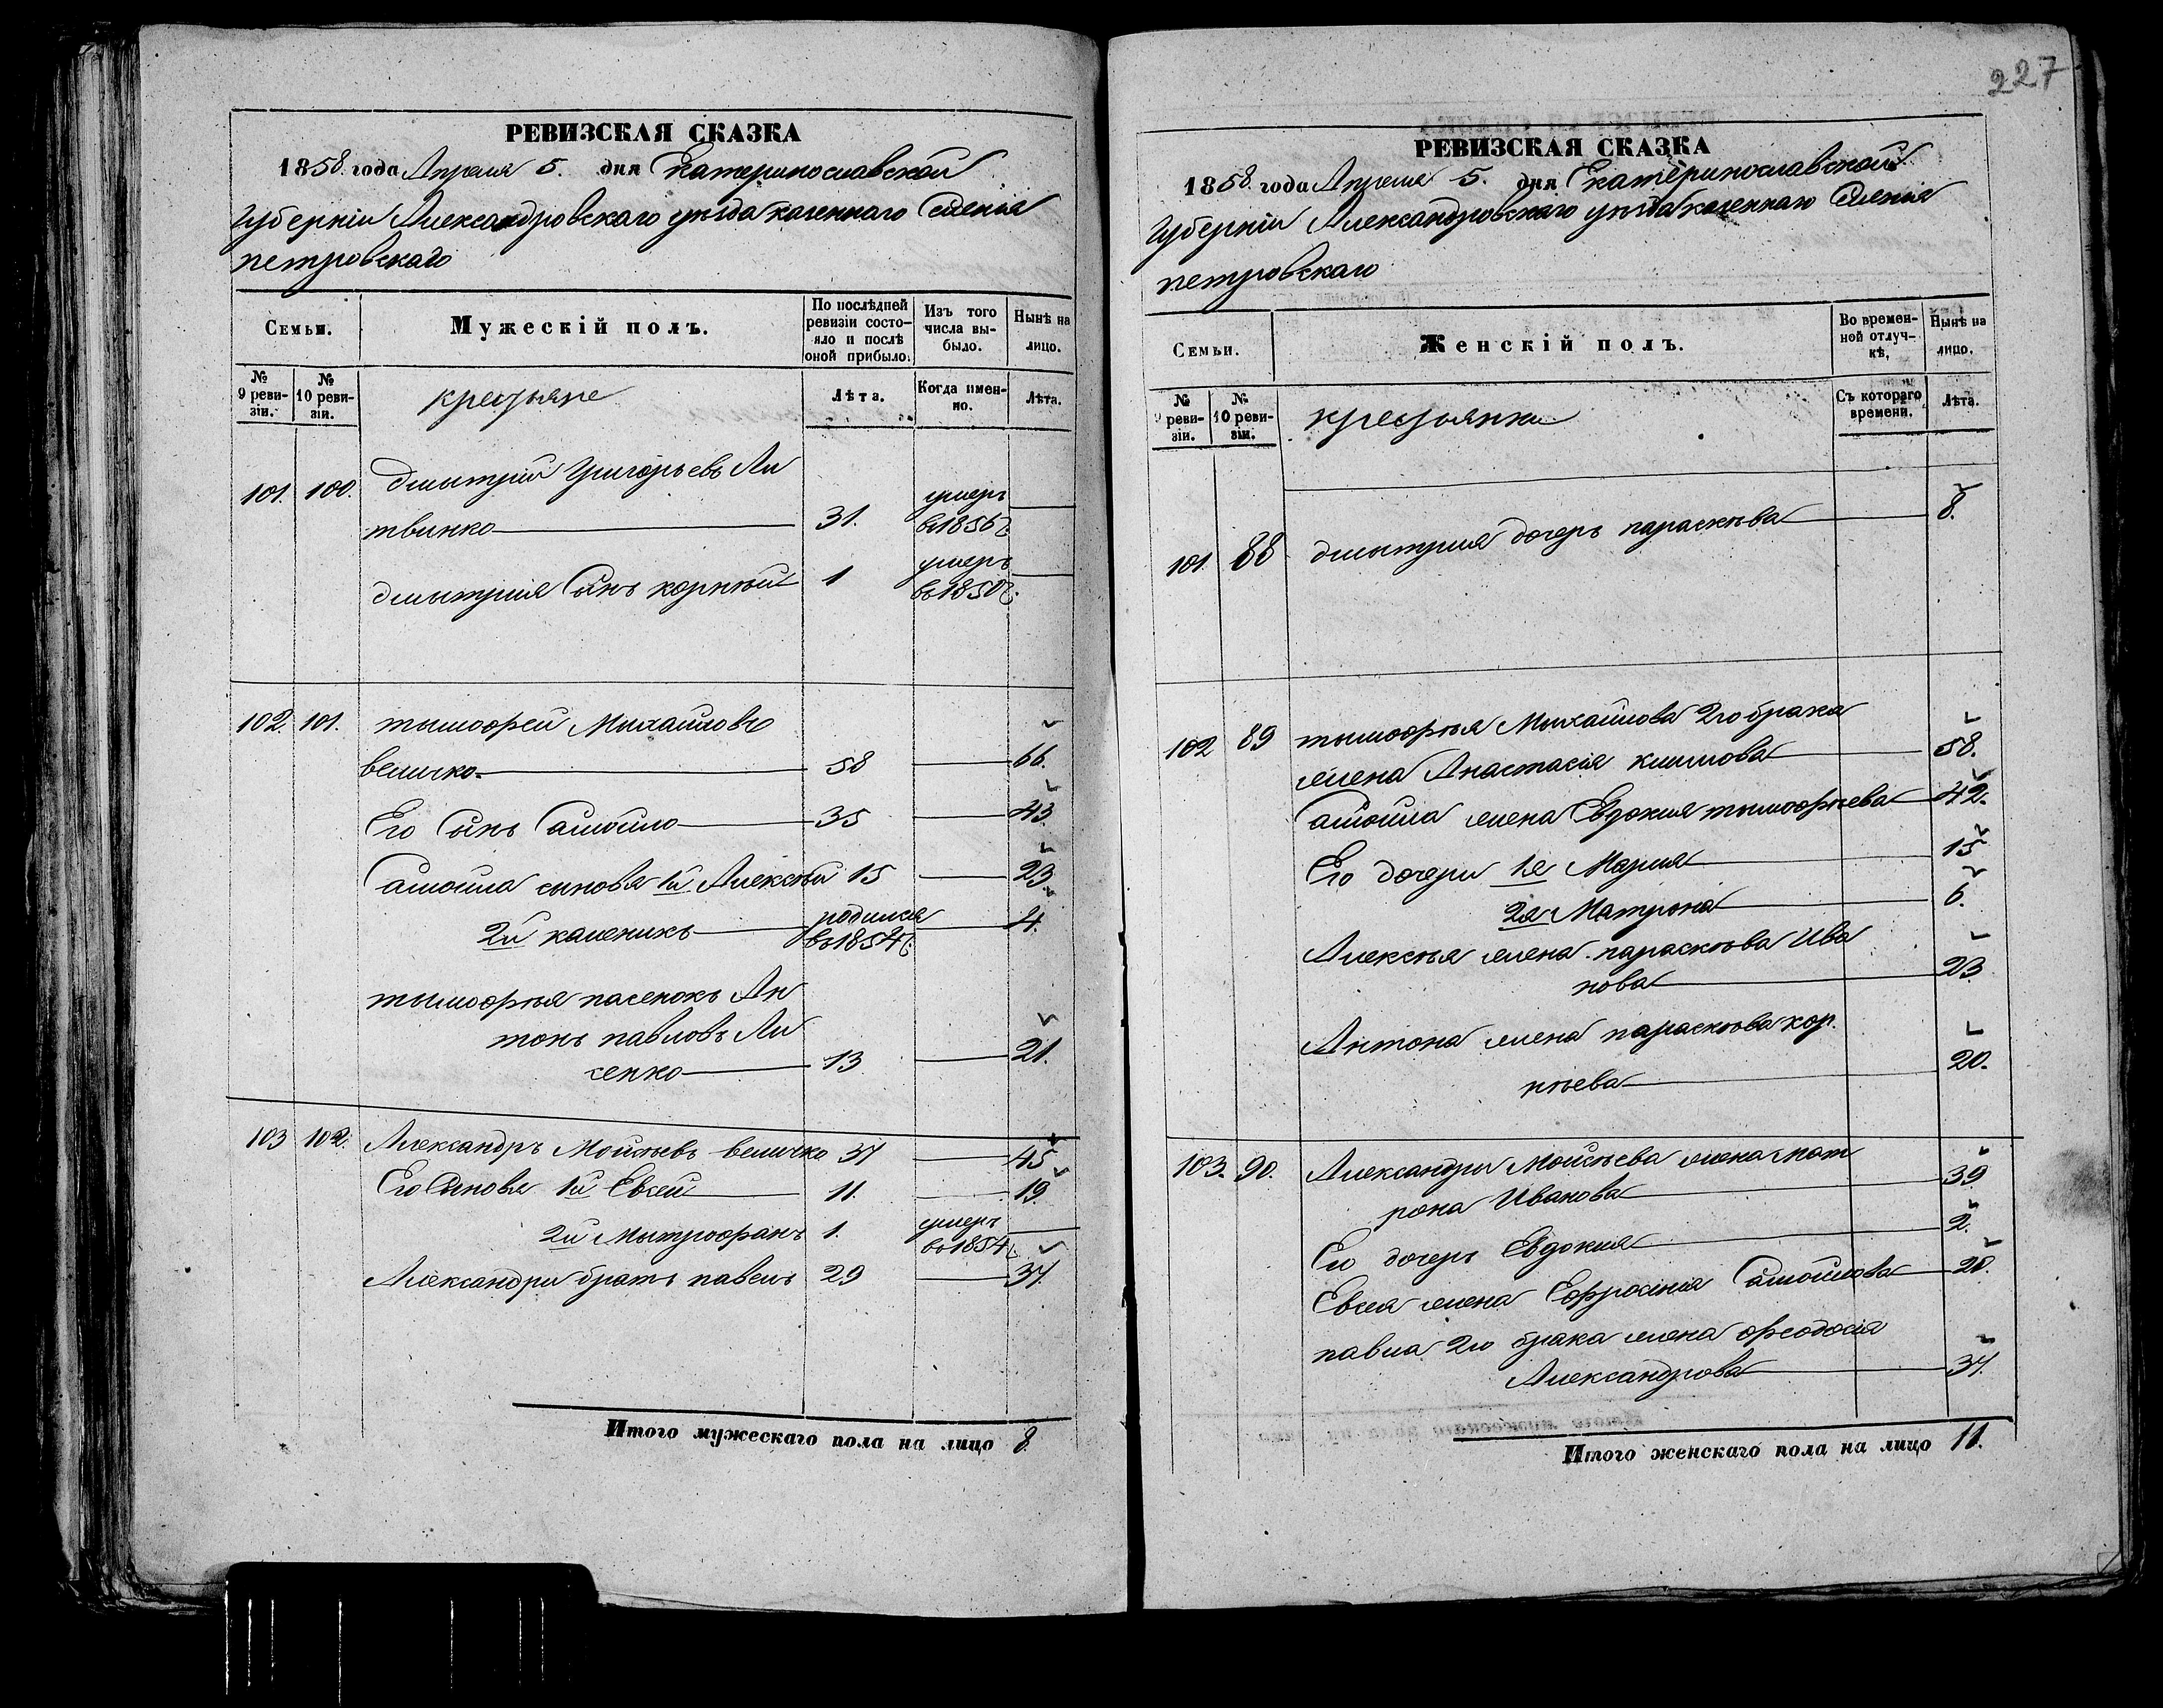 227
РЕВИЗСКАЯ СКАЗКА
1858 года Апреля 5. дня Екатеринославской
Губерніи Александровскаго уѣзда казеннаго Селенія
петровскаго
Семьи.
Мужескій полъ.
По послѣдней ревизіи состо-
яло и послѣ оной прибыло.
Изъ того числа вы-
было.
Нынѣ на лицо.
№ 9 реви-
зіи.
№ 10 реви-
зіи.
крестьяне
Лѣта.
Когда имен-
но.
Лѣта.
101. 100. дмытрій Григорьевъ Ли
твинко 31. умеръ в 1856 г.
дмытрия Сынъ корнѣй 1 умеръ въ 1850 г.
102. 101. тымофей Мыхайловъ
величко. 58 66.
Его Сынъ Самойло 35 43.
Самойла сыновья 1й Алексѣй 15 23
2й каленикъ родился въ 1854 г. 4.
тымофѣя пасенокъ Ан
тонъ павловъ Ли
сенко 13 21.
103 102. Александръ Мойсѣевъ величко 37 45
Его Сыновя 1й Евсей 11. 19
2й Мытрофанъ 1. умеръ въ 1854 г.
Александри братъ павелъ 29 37.
Итого мужескаго пола на лицо 8.
РЕВИЗСКАЯ СКАЗКА
1858 года Апреля 5. дня Екатеринославской
Губерніи Александровскаго уѣзда казеннаго Селенія
петровскаго
Семьи.
Женскій полъ.
Во времен-
ной отлуч-
кѣ,
Нынѣ на лицо.
№ 9 реви-
зіи.
№ 10 реви-
зіи.
крестьянки
Съ котораго времени.
Лѣта.
101. 88 дмытрия дочерь параскѣва 8.
102 89 тымофѣя Мыхайлова 2го брака
жена Анастасія климова 58.
Самойла жена Евдокия тымофѣева 42.
Его дочери 1я Мария 15
2я Матрона 6.
Алексѣя жена параскѣва Ива
нова 23
Антона жена параскѣва кор
нѣева 20.
103. 90. Александри Мойсѣева жена Мат
рона Иванова 39
Его дочерь Евдокия 2.
Евсея жена Ефросинія Самойлова 20.
павла 2го брака жена феодосія
Александрова 37.
Итого женскаго пола на лицо 11.